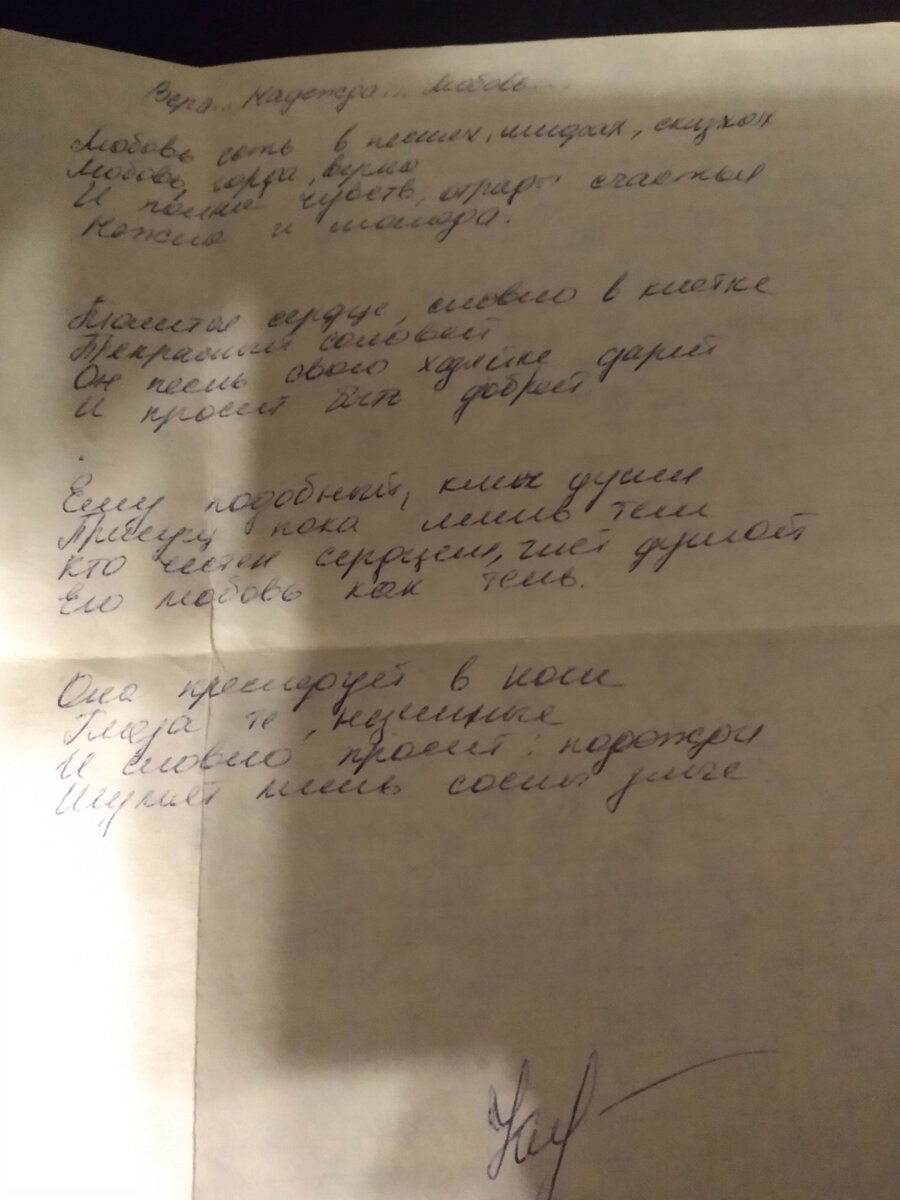 Вера... Надежда... Любовь...
Любовь есть в песнях, мифах, сказках
Любовь, горда, верна
И полна чувств, отрады счастья
Нежна и молода.
Таится сердце, словно в клетке
Прекрасный соловей
Он песнь свою хозяйке дарит
И просит быть доброй
Ему подобный, ключ души
пока лишь тем
Кто честен сердцем, чист душой
Его любовь как тень.
Она преследует в ночи
Глаза те,
И словно просит: подожди
Шумят лишь сосны